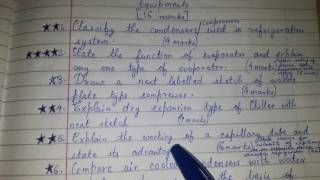 Equipments
[16 marks]
compressors
★★1. Classify the condensers used in refrigeration
system. (4 marks)
★★★★2. State the function of evaporator and explain
any one type of evaporator. (4 marks)
★3. Draw a neat labelled sketch of
plate type compressor. (4 marks)
★★4. Explain dry expansion type of chiller with
neat sketch (4 marks)
★★5. Explain the working of a capillary tube and
state its advantages (6 marks)
★6. Compare air cooled condensers with water
the basis of